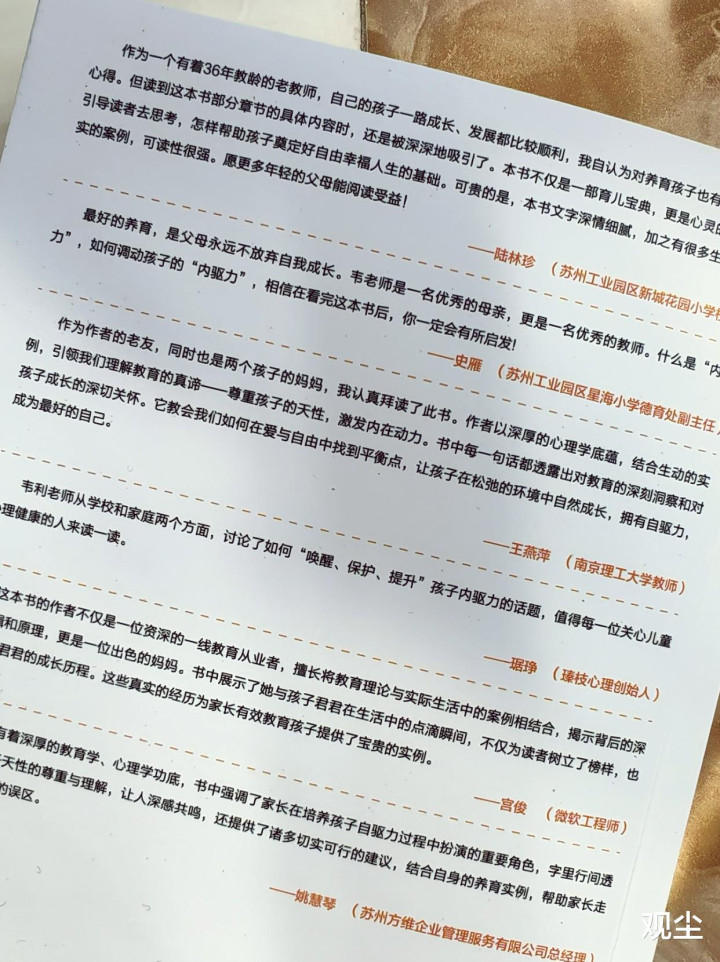 作为一个有着36年教龄的老教师，自己的孩子一路成长、发展都比较顺利，我自认为对养育孩子也有
心得。但读到这本书部分章节的具体内容时，还是被深深地吸引了。本书不仅是一部育儿宝典，更是心灵的
引导读者去思考，怎样帮助孩子奠定好自由幸福人生的基础。可贵的是，本书文字深情细腻，加之有很多生
实的案例，可读性很强。愿更多年轻的父母能阅读受益！
——陆林珍 （苏州工业园区新城花园小学校
最好的养育，是父母永远不放弃自我成长。韦老师是一名优秀的母亲，更是一名优秀的教师。什么是“内
力”，如何调动孩子的“内驱力”，相信在看完这本书后，你一定会有所启发！
——史雁 （苏州工业园区星海小学德育处副主任）
作为作者的老友，同时也是两个孩子的妈妈，我认真拜读了此书。作者以深厚的心理学底蕴，结合生动的实
例，引领我们理解教育的真谛——尊重孩子的天性，激发内在动力。书中每一句话都透露出对教育的深刻洞察和对
孩子成长的深切关怀。它教会我们如何在爱与自由中找到平衡点，让孩子在松弛的环境中自然成长，拥有自驱力，
成为最好的自己。
——王燕萍 （南京理工大学教师）
韦利老师从学校和家庭两个方面，讨论了如何“唤醒、保护、提升”孩子内驱力的话题，值得每一位关心儿童
心理健康的人来读一读。
——琚琤 （瑧枝心理创始人）
这本书的作者不仅是一位资深的一线教育从业者，擅长将教育理论与实际生活中的案例相结合，揭示背后的深
和原理，更是一位出色的妈妈。书中展示了她与孩子君君在生活中的点滴瞬间，不仅为读者树立了榜样，也
君君的成长历程。这些真实的经历为家长有效教育孩子提供了宝贵的实例。
——宫俊 （微软工程师）
有着深厚的教育学、心理学功底，书中强调了家长在培养孩子自驱力过程中扮演的重要角色，字里行间透
天性的尊重与理解，让人深感共鸣，还提供了诸多切实可行的建议，结合自身的养育实例，帮助家长走
的误区。
——姚慧琴 （苏州方维企业管理服务有限公司总经理）
观尘